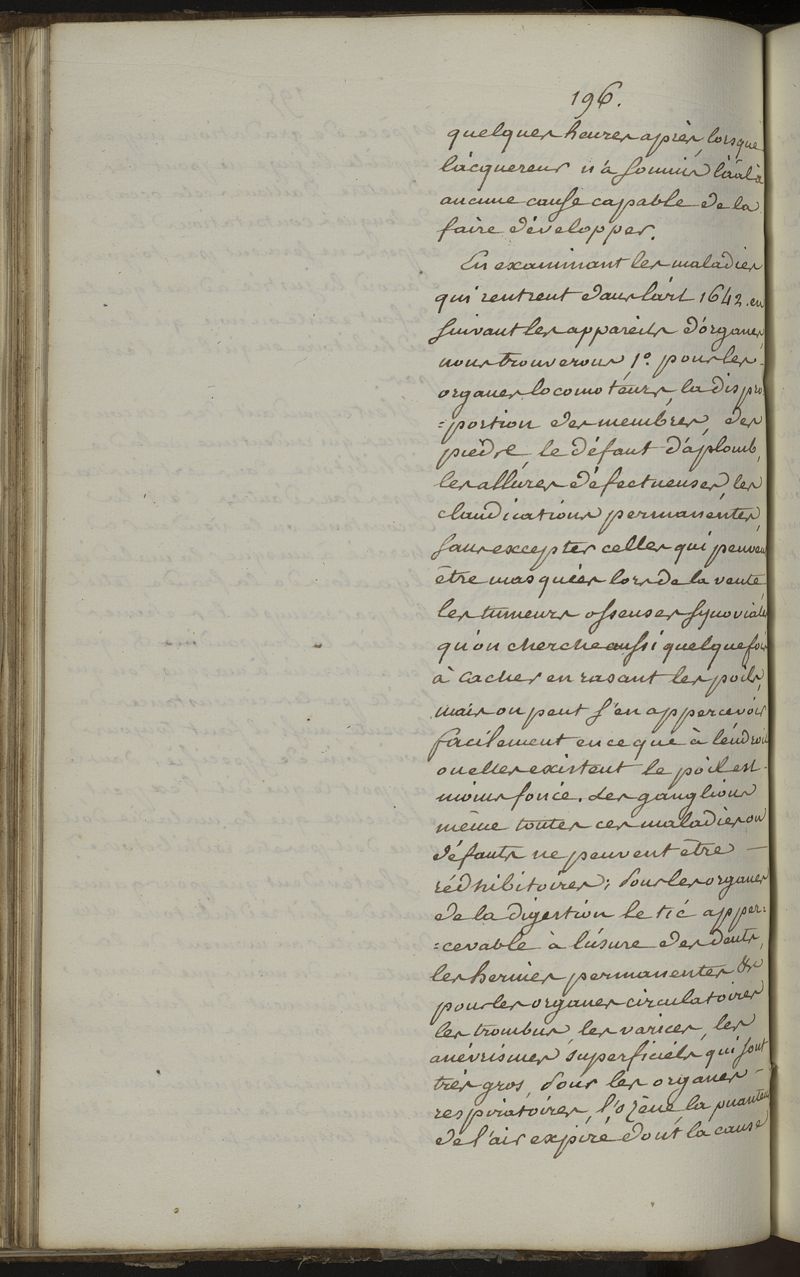 196.
quelques heures après, lorsque
l'acquereur n'a soumis l'aâl à
aucune cause capable de la
faire développer.
En examinant les maladies
qui rentrent dans l'art 1642. en
suivant les appareils d'organes,
nous trouverons, 1.° pour les
organes locomoteurs, la dispro
=portion des membres, des
pieds, le défaut d'aplomb,
les allûres défectueuses, les
claudications permanentes,
sans excepter celles qui peuven
être masquées lors de la vente,
les tumeurs osseuses synoviale
qu'on cherche aussi quelquefois
à cacher en rasant les poils,
mais on peut s'en appercevoir
facilement en ce que à l'endroit
ou elles existent le poil est
moins foncé. Les ganglions
même toutes ces maladies ou
défauts ne peuvent être —
rédhibitoires; pour les organes
de la digestion le tic apper=
=cevable à l'usure des dents,
les hernies permanentes &c
pour les organes circulatoires
les trombus, les varices, les
anévrismes superficiels qui sont
très gros, pour les organes —
respiratoires, l'ozène, la puanteu
de l'air expiré dont la cause